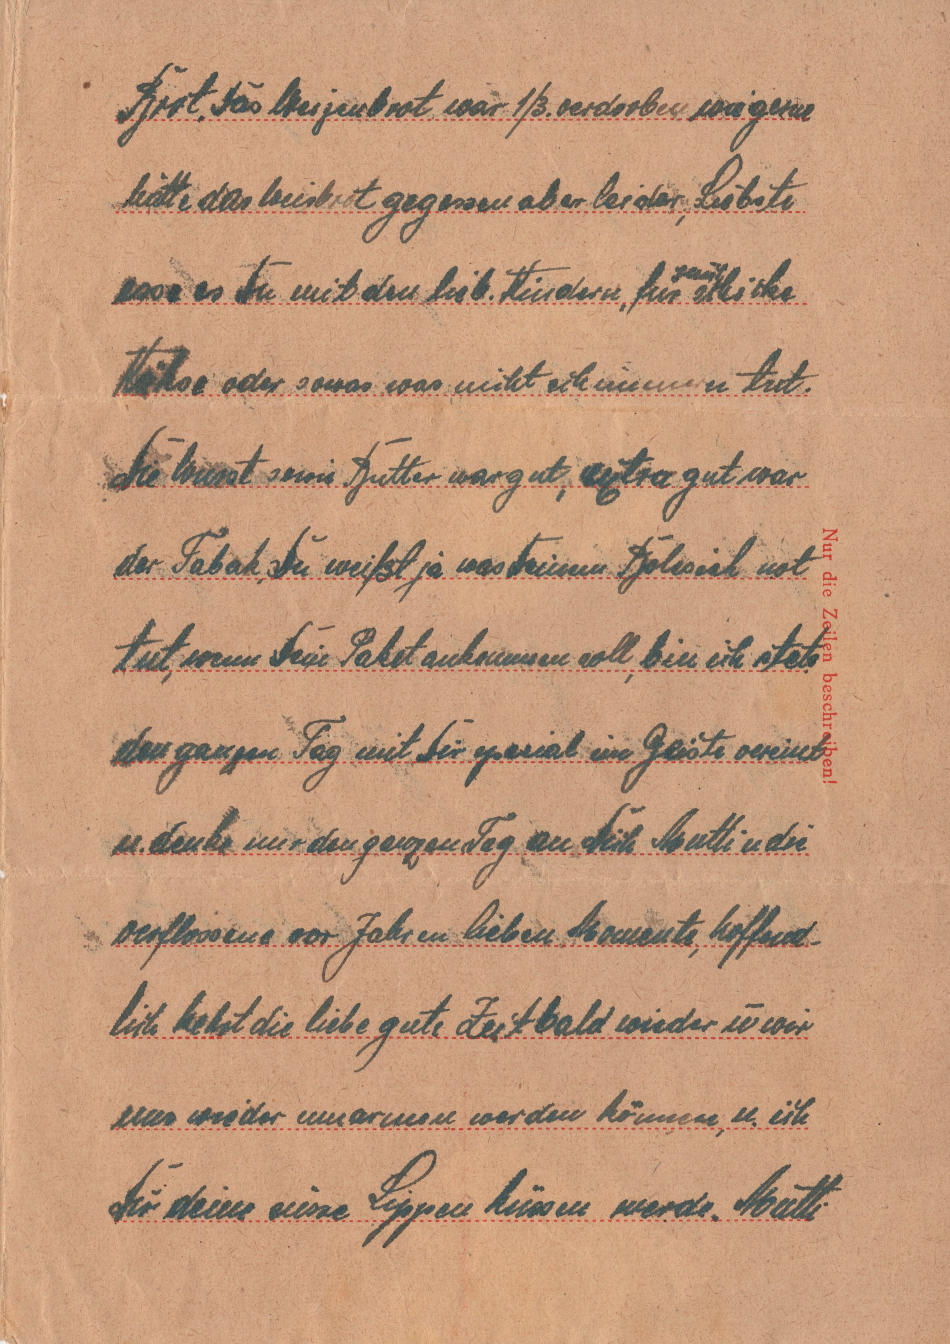 Brot. Das Weizenbrot war 1/3. verdorben, wie gerne
hätte das Weisbrot gegessen aber leider, Liebste
esse es Du mit den lieb. Kindern, für mich schicke
Kekse oder sowas was nicht schimmern tut.
Die Wurst sowie Butter war gut, extra gut war
der Tabak, Du weißt ja was Deinem Boleslek not
tut, wenn Dein Paket ankommen soll, bin ich stets
den ganzen Tag mit Dir spezial im Geiste vereint
u. denke nur den ganzen Tag an Dich Mutti u die
verflossene vor Jahren lieben Momente, hoffend-
lich kehrt die liebe gute Zeit bald wieder u wir
uns wieder umarmen werden können, u. ich
Dir deine süsse Lippen küssen werde. Mutti
Nur die Zeilen beschreiben!